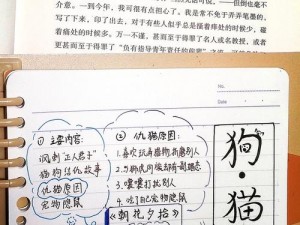 介意。一到今年，我可很有点担心了。我是常不免于弄弄笔墨的，
写了下来，印了出去，对于有些人似乎总是搔着痒处的时候少，碰
着痛处的时候多。万一不谨，甚而至于得罪了名人或名教授，或者
更甚而至于得罪了“负有指导青年责任的前辈”之流，可就危险已
① 主要内容:
讽刺“正人君子”
猫狗结仇故事
仇猫原因
宠物隐鼠
② 仇猫原因:
1.喜欢玩弄猎物折磨别人
3.嚎嚎打扰别人
4.吃了自己宠物隐鼠
《朝花夕拾》
狗·猫